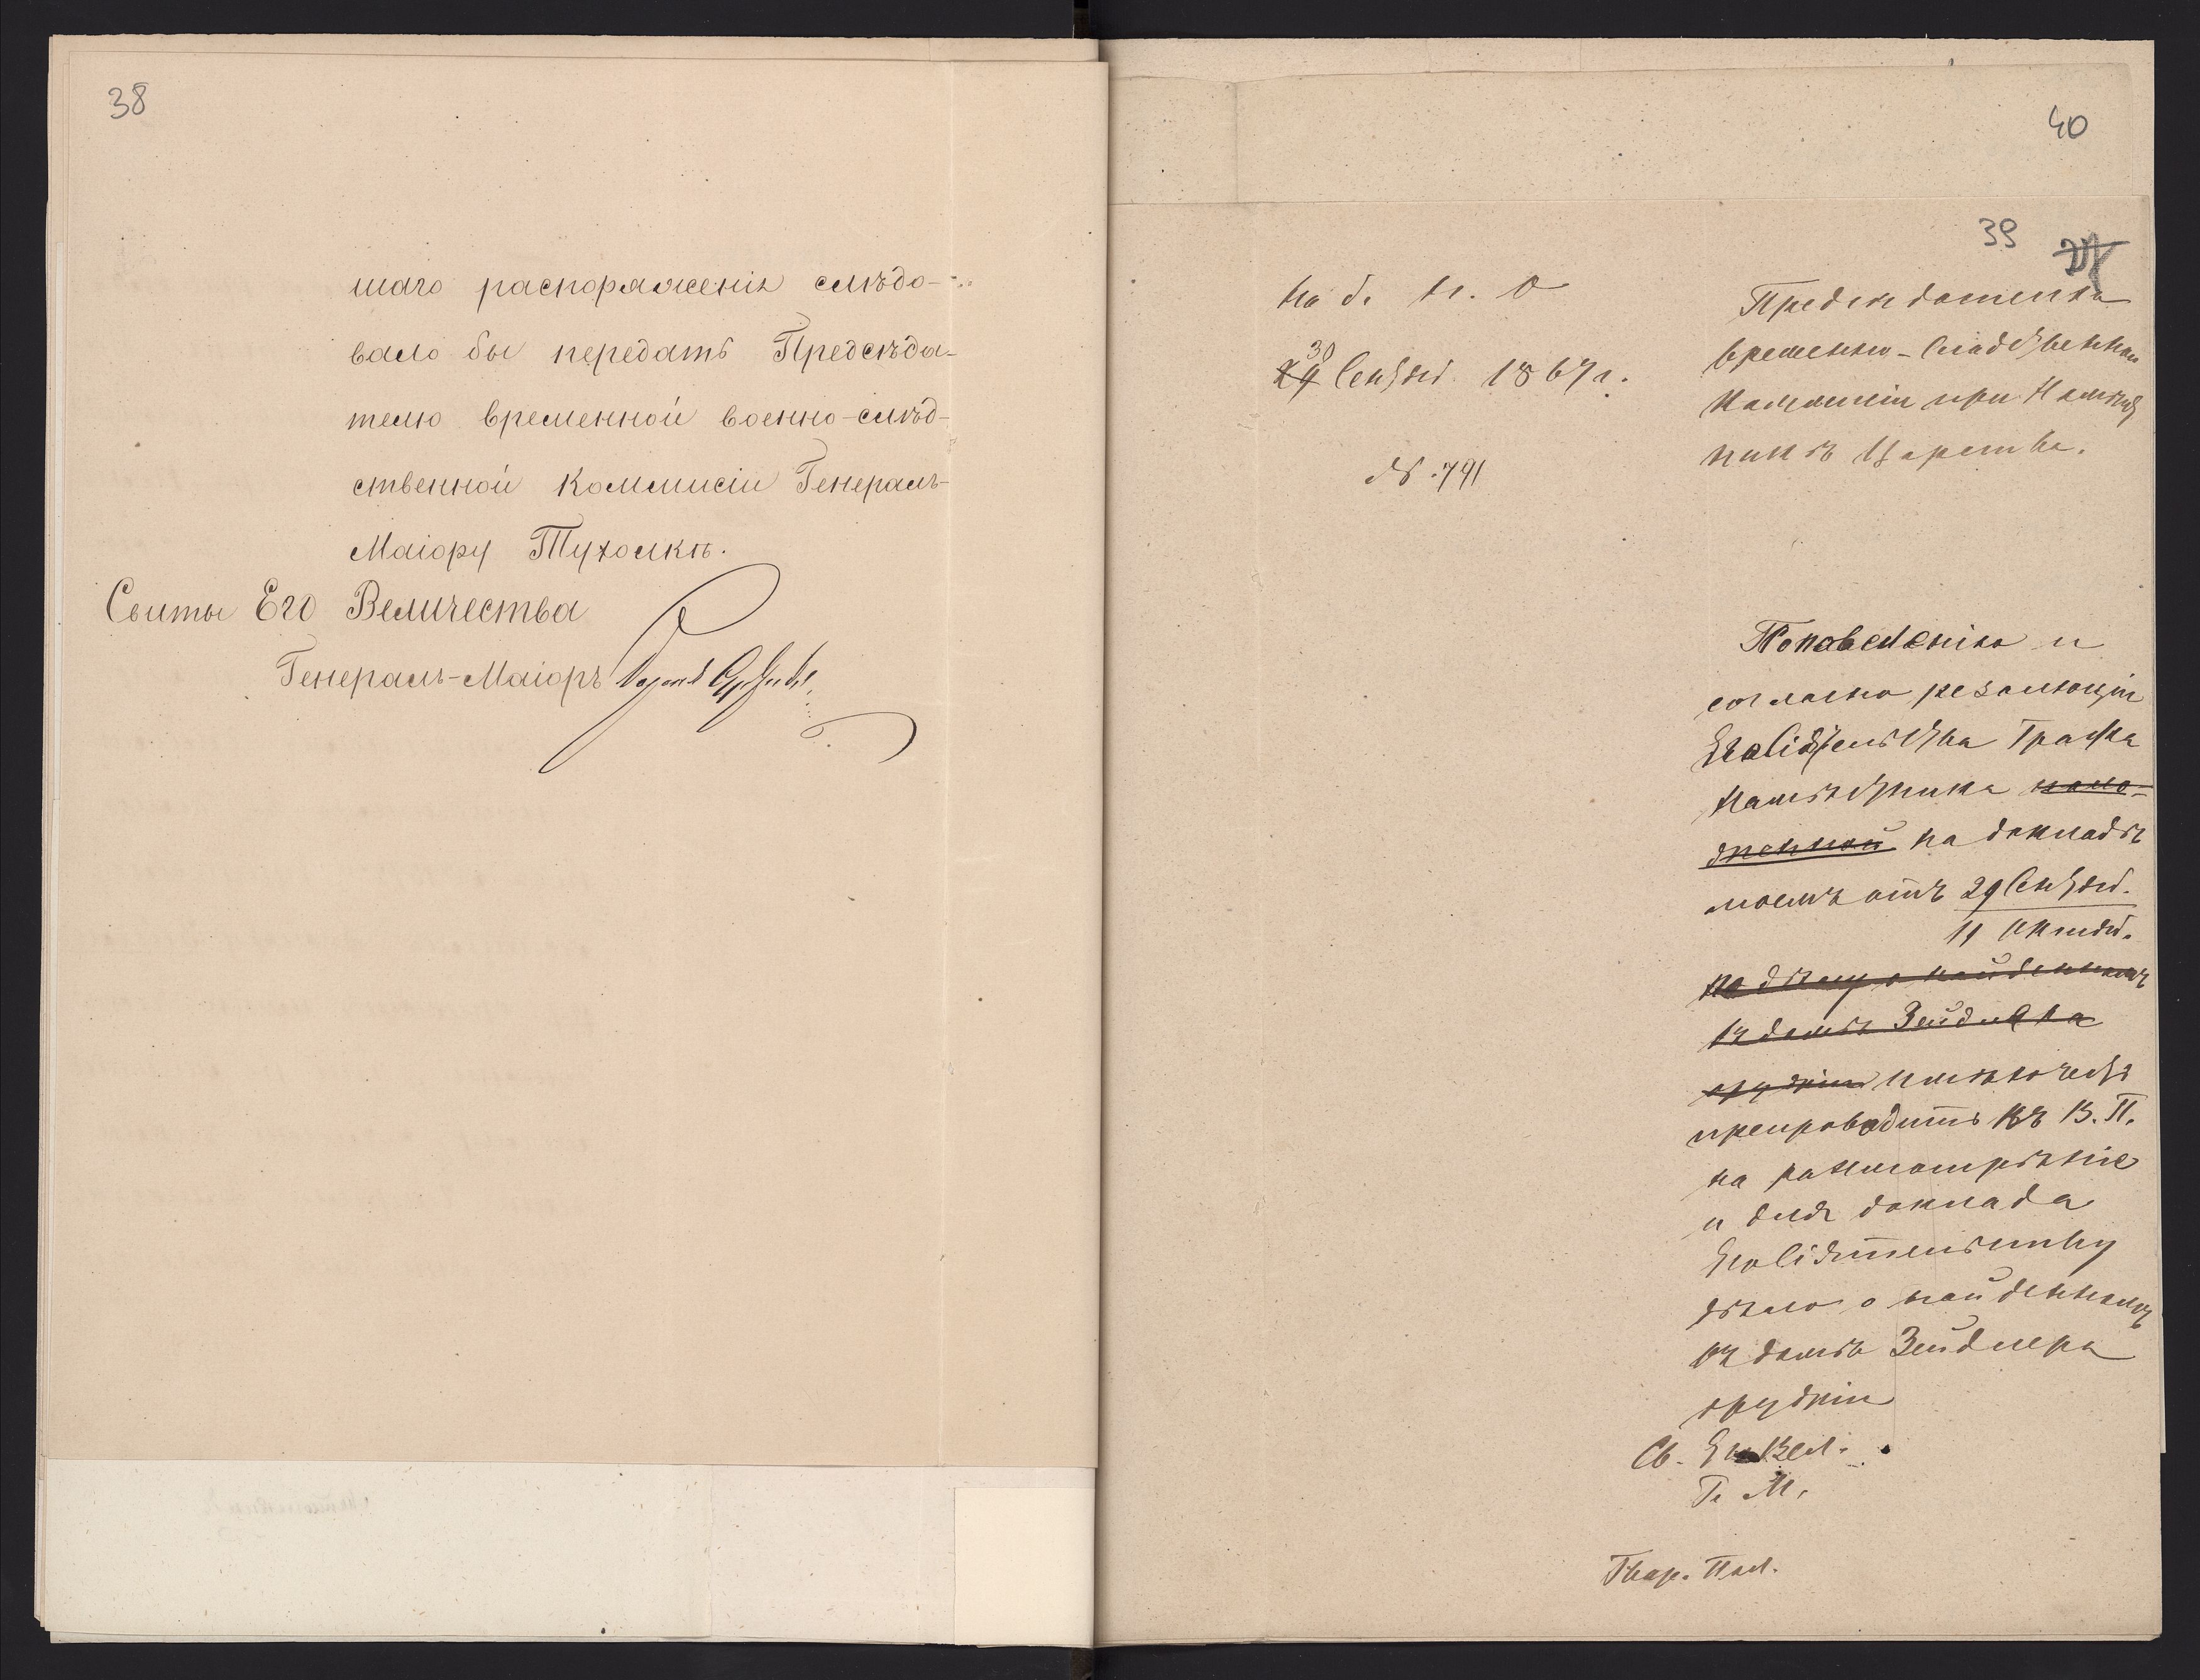 38
шаго распоряженія слѣдо-
вало бы передать Предсѣда-
телю временной военно-слѣд-
ственной Коммисіи Генералъ-
Маіору Тухолкѣ.
Свиты Его Величества
Генералъ-Маіоръ
40
39
Предсѣдателю
временно-Слѣдственной
Коммисіи при Намѣст
никѣ Царства.
30
29 Сентяб. 1867 г.
№ 791
По повелѣнію и
согласно резолюціи
Его Сіятельства Графа
Намѣстника поло-
женной на докладѣ
моемъ отъ 29 Сентяб.
11 Октяб.
по дѣлу о найденномъ
въ домѣ Зейдлера
оружіи имѣю честь
препроводить къ В. П.
на разсмотрѣніе
и для доклада
Его Сіятельству
дѣло о найденномъ
въ домѣ Зейдлера
оружіи
Св. Его Вел.
Г. М.
Гвар. Пол.